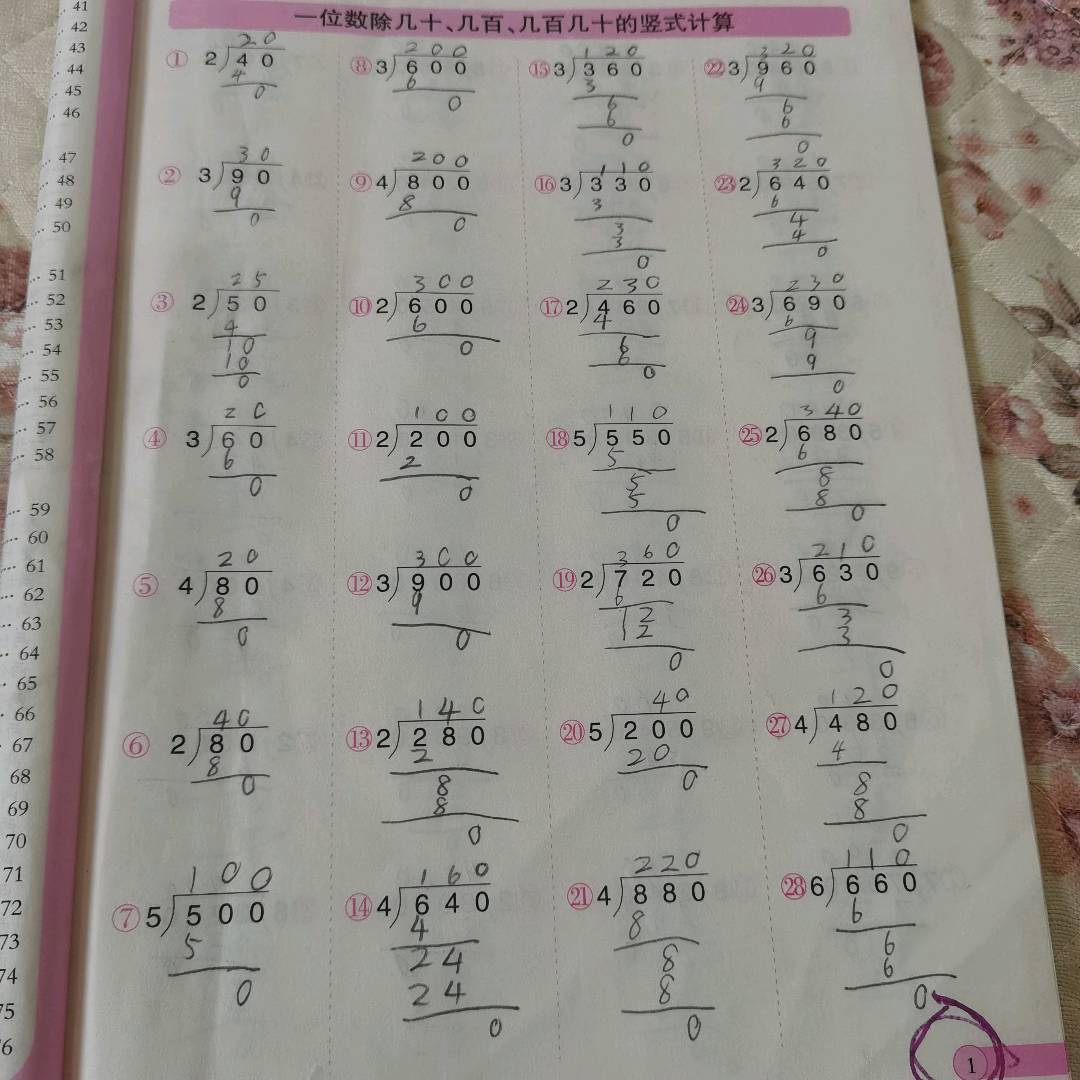 一位数除几十、几百、几百几十的竖式计算
41
42
43
44
45
46
47
48
49
50
51
52
53
54
55
56
57
58
59
60
61
62
63
64
65
66
67
68
69
70
71
72
73
74
75
6
20
① 2)40
4
0
30
② 3)90
9
0
25
③ 2)50
4
10
10
0
20
④ 3)60
6
0
20
⑤ 4)80
8
0
40
⑥ 2)80
8
0
100
⑦ 5)500
5
0
200
⑧ 3)600
6
0
200
⑨ 4)800
8
0
300
⑩ 2)600
6
0
100
⑪ 2)200
2
0
300
⑫ 3)900
9
0
140
⑬ 2)280
2
8
8
0
160
⑭ 4)640
4
24
24
0
120
⑮ 3)360
3
6
6
0
110
⑯ 3)330
3
3
3
0
230
⑰ 2)460
4
6
6
0
110
⑱ 5)550
5
5
5
0
360
⑲ 2)720
6
12
12
0
40
⑳ 5)200
20
0
220
㉑ 4)880
8
8
8
0
320
㉒ 3)960
9
6
6
0
320
㉓ 2)640
6
4
4
0
230
㉔ 3)690
6
9
9
0
340
㉕ 2)680
6
8
8
0
210
㉖ 3)630
6
3
3
0
120
㉗ 4)480
4
8
8
0
110
㉘ 6)660
6
6
6
0
1